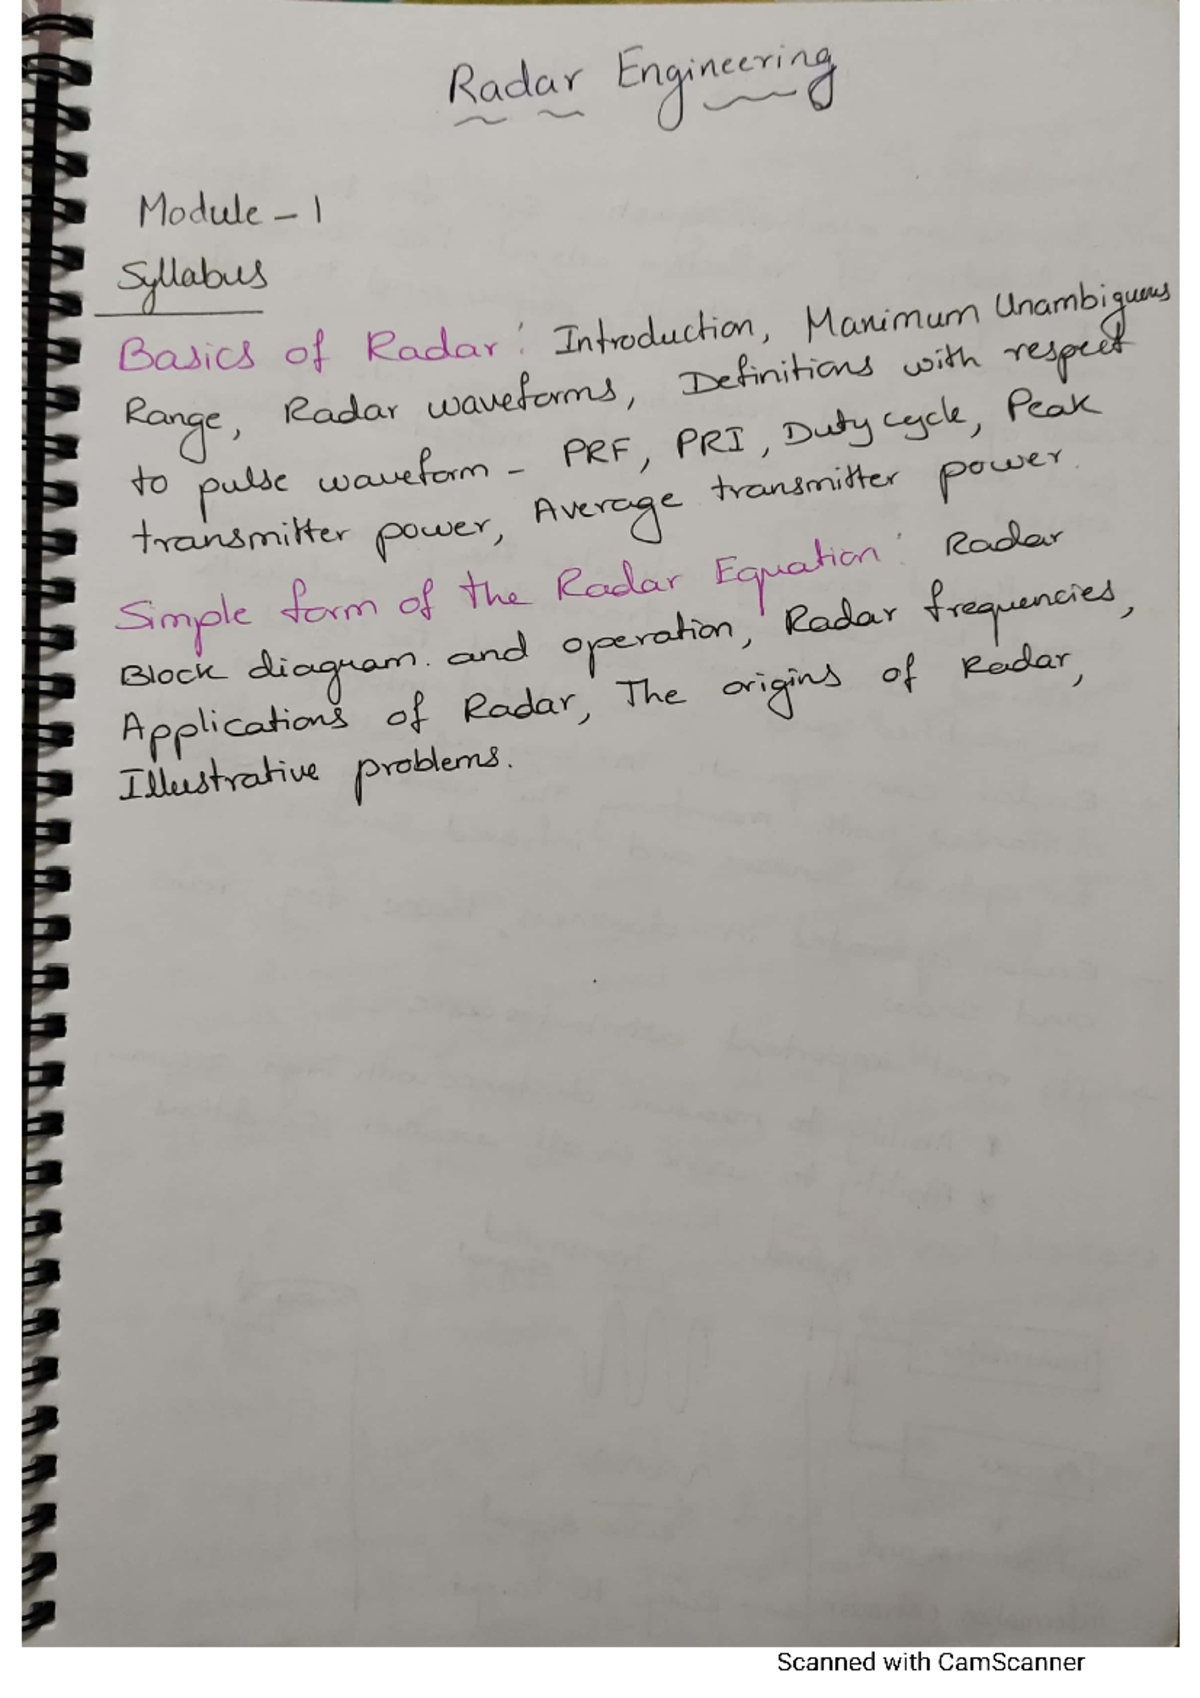 Radar Engineering
Module - 1
Syllabus
Basics of Radar: Introduction, Maximum Unambiguous
Range, Radar waveforms, Definitions with respect
to pulse waveform - PRF, PRI, Duty cycle, Peak
transmitter power, Average transmitter power.
Simple form of the Radar Equation: Radar
Block diagram. and operation, Radar frequencies,
Applications of Radar, The origins of Radar,
Illustrative problems.
Scanned with CamScanner